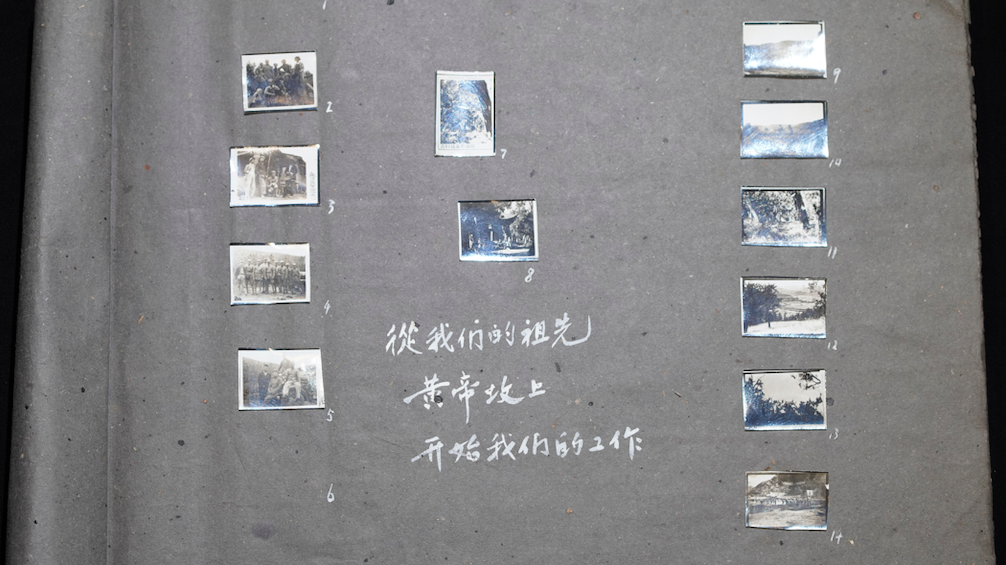 2
3
4
5
6
7
8
從我们的祖先
黄帝坟上
开始我们的工作
9
10
11
12
13
14